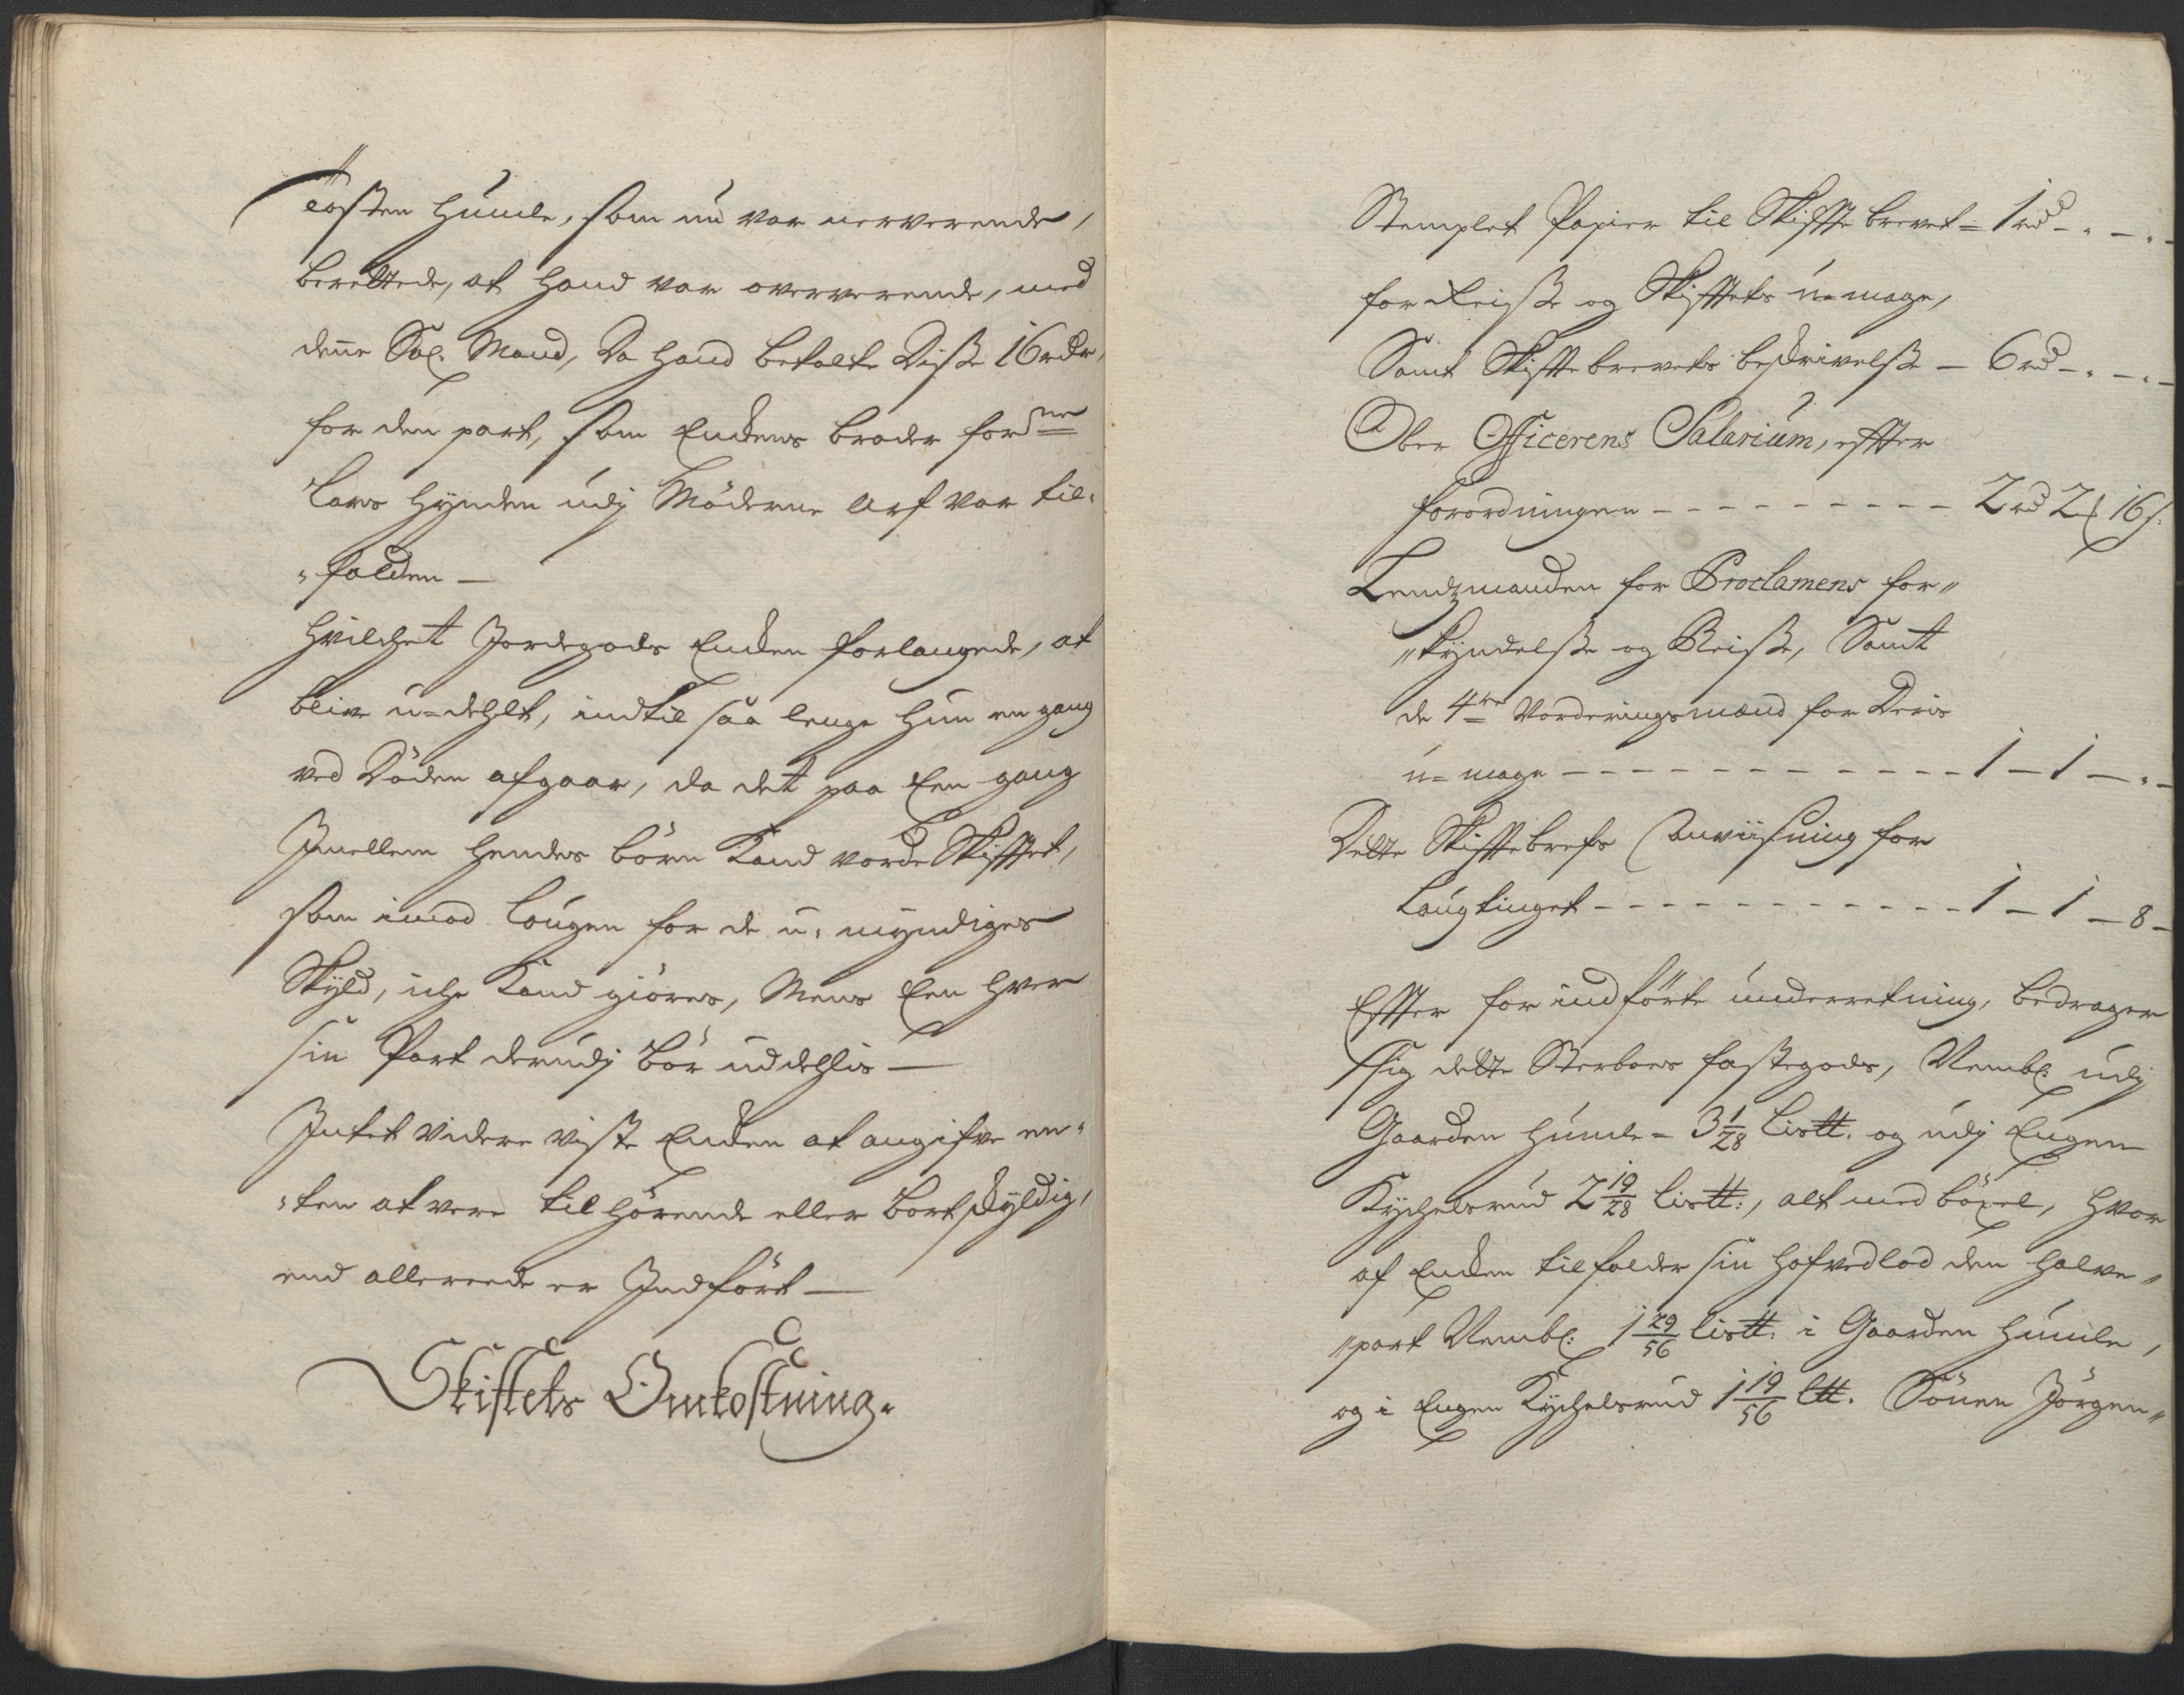 Torsten Humle, som nu var nerverende,
berettede, at hand var oververende, med
denne Sal. Mand, Da hand betalte Disse 16 rdr,
for den part, som Enckens broder fordne
Lars Hynden udj Möderne Arf var til„
„falden —
Hvilchet Jordegods Encken forlangede, at
blive u=dehlt, indtil saa lenge hun en gang
ved Döden afgaar, da det paa Een gang
Imellem hendes börn Kand vorde Skifftet,
som imod Lougen for de u„myndiges
Skyld, iche Kand giöres, Mens Een hver
sin Part derudj bör uddehlis —
Intet videre viste Encken at angifve en„
„ten at vere tilhörende eller bortskyldig,
end allereede er Indfört —
Skiftets Omkostning.
Stemplet Papier til Skiffte brevet = 1 rd - „ - „ -
for Reisse og Skifftets u=mage,
Samt Skiffte brevets beskrivelsse - 6 rd - „ - „ -
Ober Officerens Salarium, effter
forordningen - - - - - - - - - 2 rd 2 16 s.
Lendzmanden for Proclamens for„
„kyndelsse og Reisse, Samt
de 4re Vorderingsmænd for Deris
u=mage - - - - - - - - - - - 1 - 1 - „ -
Dette Skifftebrefs Anviisning for
Laugtinget - - - - - - - - - - - 1 - 1 - 8 -
Effter for indförte underretning, bedrager
Sig dette Sterboes fastegods, Nembl: udj
Gaarden Humle - 3 1/28 Lis℔. og udj Engen
Kychelsrud 2 19/28 Lis℔:, alt med böxel, hvor
af Encken tilfalder sin hofvedlod den halve„
„part Nembl: 1 29/56 Lis℔: i Gaarden Humle,
og i Engen Kychelsrud 1 19/56 L℔. Sönen Jörgen„